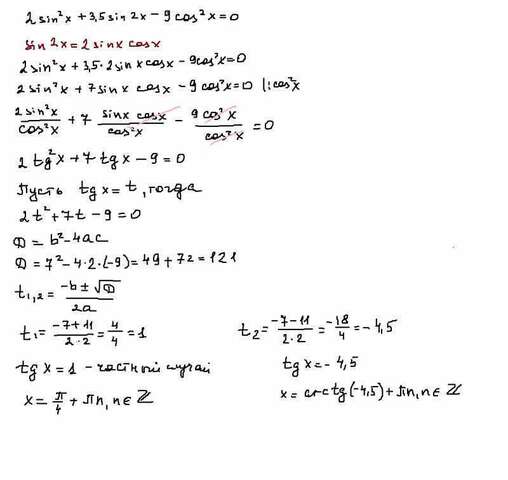 2 sin²x + 3,5 sin 2x - 9 cos²x = 0
sin 2x = 2 sinx cosx
2 sin²x + 3,5 · 2 sin x cosx - 9 cos²x = 0
2 sin²x + 7 sin x cosx - 9 cos²x = 0 |: cos²x
2 sin²x / cos²x + 7 sinx cosx / cos²x - 9 cos²x / cos²x = 0
2 tg²x + 7 tg x - 9 = 0
Пусть tg x = t, тогда
2t² + 7t - 9 = 0
D = b² - 4ac
D = 7² - 4·2·(-9) = 49 + 72 = 121
t₁,₂ = -b ± √D / 2a
t₁ = -7+11 / 2·2 = 4/4 = 1
tg x = 1 - частный случай
x = π/4 + πn, n ∈ ℤ
t₂ = -7-11 / 2·2 = -18/4 = -4,5
tg x = -4,5
x = arctg(-4,5) + πn, n ∈ ℤ